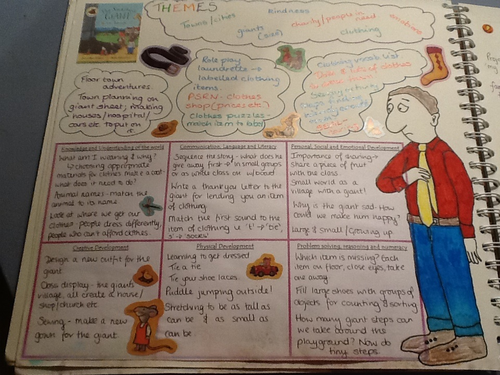 THEMES
Towns/cities
Kindness
giants
(size)
charity/people in
need
emotions
clothing
Floor town
adventures
Town planning on
giant sheet, making
houses/hospital/
cars etc to put on
it
Role play
laundrette →
labelled clothing
items
clothes
shop (prices etc.)
Clothes puzzles -
match item to label
Clothing vocab list
Knowledge and Understanding of the world
What am I wearing & why?
Choosing appropriate
materials for clothes make a coat -
what does it need to do?
Animal names - match the
animal to its name
Look at where we get our
clothes people dress differently,
people who can't afford clothes.
Communication, Language and Literacy
Sequence the story - what does he
give away first → in small groups
or as whole class on w/board
Write a thankyou letter to the
giant for lending you an item
of clothing
Match the first sound to the
item of clothing ie 't' → 'tie',
's' → 'socks'
Personal, Social and Emotional Development
Importance of sharing -
share a piece of fruit
with the class
Small world as a
village with a giant!
Why is the giant sad - How
could we make him happy?
large & small/Growing up
Creative Development
Design a new outfit for the
giant
Class display - the giants
village, all create a house/
shop/church etc
Sewing - make a new
gown for the giant
Physical Development
Learning to get dressed
Tie a tie
Tie your shoe laces
Puddle jumping outside!
Stretching to be as tall as
can be & as small as
can be
Problem solving, reasoning and numeracy
Which item is missing? Each
item on floor, close eyes, take
one away.
Fill large shoes with groups of
objects for counting & sorting
How many giant steps can
we take around the
playground? Now do
tiny steps